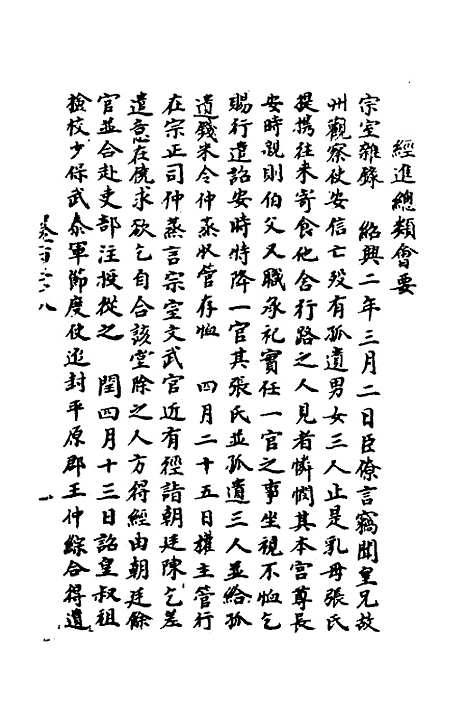 經進總類會要
宗室雜錄　紹興二年三月二日臣僚言竊聞皇兄故
州觀察使安信亡歿有孤遺男女三人止是乳母張氏
提攜往來寄食他舍行路之人見者憐憫其本宮尊長
安時說則伯父又職承祀實任一官之事坐視不恤乞
賜行遣詔安時特降一官其張氏並孤遺三人並給孤
遺錢米令仲蒸收管存恤　四月二十五日權主管行
在宗正司仲蒸言宗室文武官近有徑詣朝廷陳乞差
遣意在僥求欲乞自合該堂除之人方得經由朝廷餘
官並合赴吏部注授從之　閏四月十三日詔皇叔祖
檢校少保武泰軍節度使追封平原郡王仲綜合得遺